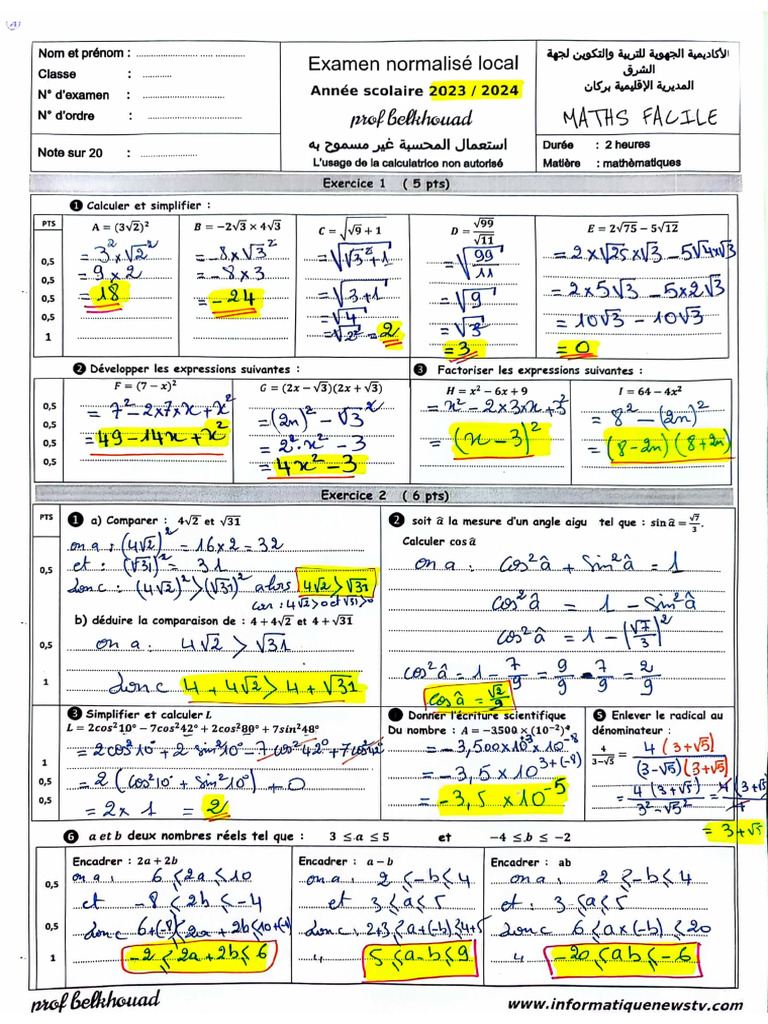 Nom et prénom : ............... ............
Classe : ...........
N° d'examen : ......................
N° d'ordre : .................
Note sur 20 : ..................
Examen normalisé local
Année scolaire 2023 / 2024
prof belkhouad
استعمال المحسبة غير مسموح به
L'usage de la calculatrice non autorisé
الأكاديمية الجهوية للتربية والتكوين لجهة
الشرق
المديرية الإقليمية بركان
MATHS FACILE
Durée : 2 heures
Matière : mathèmatiques
Exercice 1 ( 5 pts)
❶ Calculer et simplifier :
PTS
0,5
0,5
0,5
0,5
1
A = (3√2)²
= 3² × √2²
= 9 × 2
= 18
B = −2√3 × 4√3
= -8 × √3²
= -8 × 3
= -24
C = √(√9 + 1)
= √(√3² + 1)
= √(3 + 1)
= √4
= √2² = 2
D = √99/√11
= √(99/11)
= √9
= √3
= 3
E = 2√75 − 5√12
= 2 × √25 × √3 - 5√4 × √3
= 2 × 5√3 - 5 × 2√3
= 10√3 - 10√3
= 0
❷ Développer les expressions suivantes :
0,5
0,5
0,5
0,5
F = (7 − x)²
= 7² - 2×7×x + x²
= 49 - 14x + x²
G = (2x − √3)(2x + √3)
= (2x)² - √3²
= 2² · x² - 3
= 4x² - 3
❸ Factoriser les expressions suivantes :
H = x² − 6x + 9
= x² - 2×3×x + 3²
= (x - 3)²
I = 64 − 4x²
= 8² - (2x)²
= (8-2x)(8+2x)
Exercice 2 ( 6 pts)
PTS
0,5
0,5
1
❶ a) Comparer : 4√2 et √31
on a : (4√2)² = 16 × 2 = 32
et : (√31)² = 31
donc : (4√2)² > (√31)² alors 4√2 > √31
car : 4√2 > 0 et √31 > 0
b) déduire la comparaison de : 4 + 4√2 et 4 + √31
on a : 4√2 > √31
donc 4 + 4√2 > 4 + √31
❷ soit â la mesure d'un angle aigu tel que : sin â = √7/3.
Calculer cos â
on a : cos²â + sin²â = 1
cos²â = 1 - sin²â
cos²â = 1 - (√7/3)²
cos²â = 1 - 7/9 = 9/9 - 7/9 = 2/9
cosâ = √2/9
❸ Simplifier et calculer L
L = 2cos²10° − 7cos²42° + 2cos²80° + 7sin²48°
= 2cos²10° + 2 sin²10° - 7cos²42° + 7cos²42°
= 2(cos²10° + sin²10°) + 0
= 2 × 1 = 2
1
0,5
0,5
Donner l'écriture scientifique
Du nombre : A = −3500 × (10⁻²)⁴
= -3,500×10³×10⁻⁸
= -3,5 × 10³⁺⁽⁻⁸⁾
= -3,5 × 10⁻⁵
❺ Enlever le radical au
dénominateur :
4/(3−√5) = 4(3+√5)/((3-√5)(3+√5))
= 4(3+√5)/(3²-√5²) = 4(3+√5)/4
= 3+√5
❻ a et b deux nombres réels tel que : 3 ≤ a ≤ 5 et −4 ≤ b ≤ −2
0,5
0,5
1
Encadrer : 2a + 2b
on a : 6 ≤ 2a ≤ 10
et -8 ≤ 2b ≤ -4
donc 6+(-8) ≤ 2a + 2b ≤ 10+(-4)
-2 ≤ 2a + 2b ≤ 6
Encadrer : a − b
on a : 2 ≤ -b ≤ 4
et 3 ≤ a ≤ 5
donc : 2+3 ≤ a+(-b) ≤ 4+5
" 5 ≤ a-b ≤ 9
Encadrer : ab
on a : 2 ≤ -b ≤ 4
et : 3 ≤ a ≤ 5
donc 6 ≤ a×(-b) ≤ 20
" -20 ≤ ab ≤ -6
prof belkhouad
www.informatiquenewstv.com